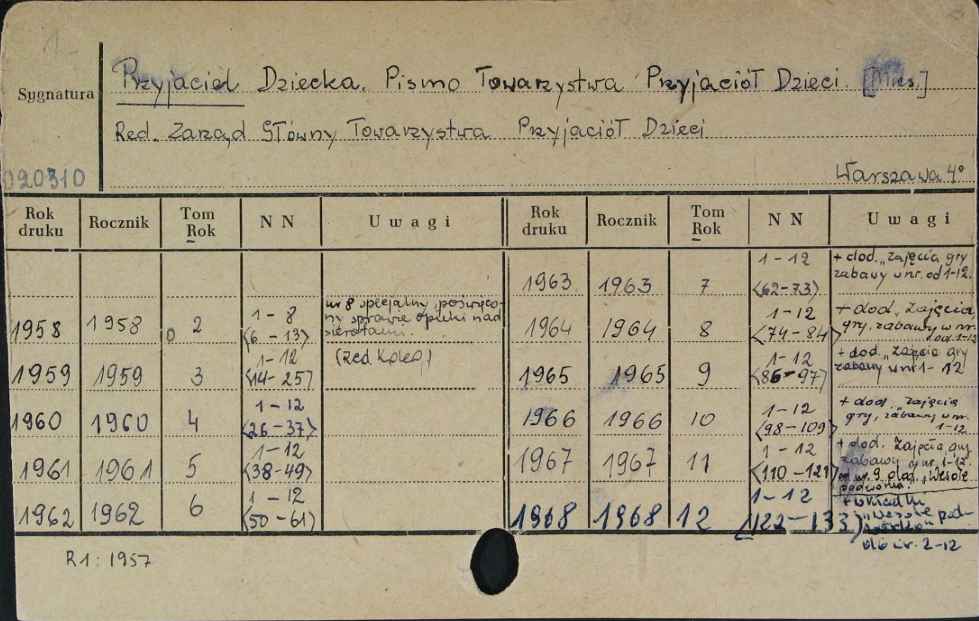 Przyjaciel Dziecka. Pismo Towarzystwa Przyjaciół Dzieci. [Mies.]
Sygnatura
Red. Zarząd Główny Towarzystwa Przyjaciół Dzieci
020310
Warszawa 4°
Rok druku Rocznik Tom Rok NN Uwagi Rok druku Rocznik Tom Rok NN Uwagi
1958 1958 2 1-8 <6-13> nr 8 specjalny poświęcony sprawie opieki nad sierotami.
1959 1959 3 1-12 <14-25> (Red. Koleg.)
1960 1960 4 1-12 <26-37>
1961 1961 5 1-12 <38-49>
1962 1962 6 1-12 <50-61>
1963 1963 7 1-12 <62-73> + dod. „Zajęcia gry zabawy w nr. od 1-12.
1964 1964 8 1-12 <74-84> + dod. „Zajęcia gry, zabawy w nr. od 1-12
1965 1965 9 1-12 <86-97> + dod. „Zajęcia gry zabawy w nr 1-12
1966 1966 10 1-12 <98-109> + dod. „Zajęcia gry, zabawy w nr. 1-12
1967 1967 11 1-12 <110-121> + dod. Zajęcia gry zabawy w nr. 1-12 od nr. 9 dod. „Wesołe podwórko"
1968 1968 12 1-12 <122-133> + wkładka „Wesołe podwórko" do nr. 2-12
R1: 1957